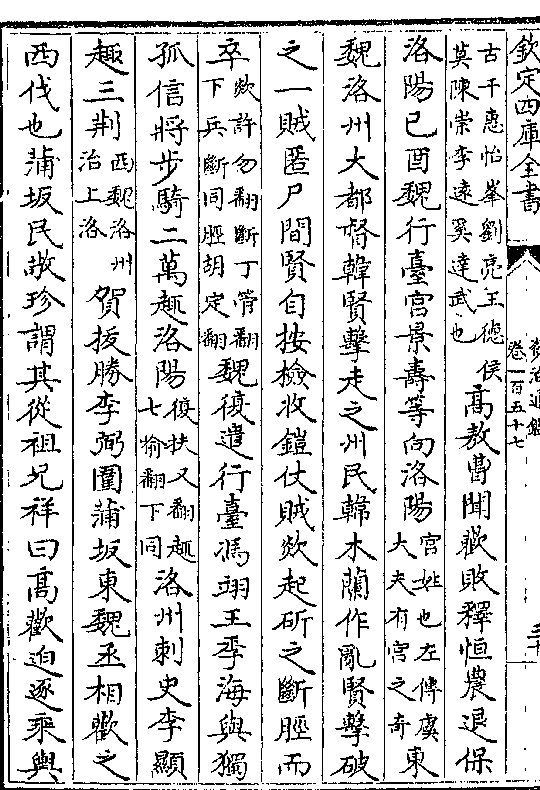 欽定四庫全書
資治通鑑
卷一百五十七
三十
古干惠怡峯劉亮王徳侯
莫陳崇李逺奚達武也
髙敖曹聞歡敗釋恒農退保
洛陽己酉魏行臺宮景壽等向洛陽
宮姓也左傳虞
大夫有宮之奇
東
魏洛州大都督韓賢擊走之州民韓木蘭作亂賢擊破
之一賊匿尸間賢自按檢收鎧仗賊欻起斫之斷脛而
卒
欻許勿翻斷丁管翻
下兵斷同脛胡定翻
魏復遣行臺馮翊王季海與獨
孤信將步騎二萬趣洛陽
復扶又翻趣
七喻翻下同
洛州刺史李顯
趣三荆
西魏洛州
治上洛
賀拔勝李弼圍蒲坂東魏丞相歡之
西伐也蒲坂民敬珍謂其從祖兄祥曰髙歡迫逐乗輿